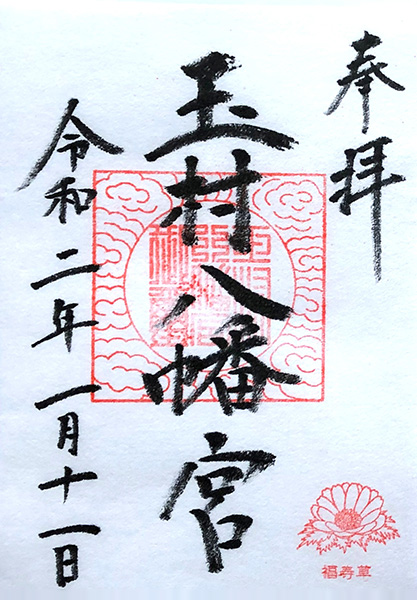 奉拝
玉村八幡宮
令和二年一月十一日
福寿草